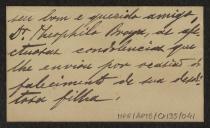 seu bom e querido amigo,
Dr. Theophilo Braga, as afe-
ctuosas condolencias que
lhe enviou por occasião do
falecimento de sua desdi-
tosa filha.